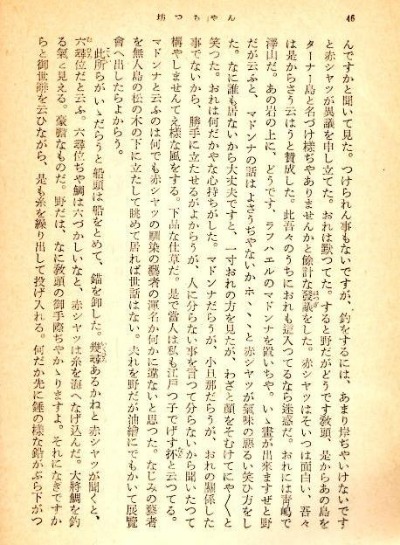 坊つちやん
46
んですかと聞いて見た。つけられん事もないですが、釣をするには、あまり岸ぢやいけないです
と赤シヤツが異議を申し立てた。おれは默つてた。すると野だがどうです教頭、是からあの島を
ターナー島と名づけ樣ぢやありませんかと餘計な發議をした。赤シヤツはそいつは面白い、吾々
は是からさう云はうと賛成した。此吾々のうちにおれも這入つてるなら迷惑だ。おれには靑嶋で
澤山だ。あの岩の上に、どうです、ラフハエルのマドンナを置いちや。いゝ畫が出來ますぜと野
だが云ふと、マドンナの話はよさうぢやないかホヽヽヽと赤シヤツが氣味の惡るい笑ひ方をし
た。なに誰も居ないから大丈夫ですと、一寸おれの方を見たが、わざと顏をそむけてにや〳〵と
笑つた。おれは何だかやな心持ちがした。マドンナだらうが、小旦那だらうが、おれの關係した
事でないから、勝手に立たせるがよからうが、人に分らない事を言つて分らないから聞いたつて
構やしませんてえ樣な風をする。下品な仕草だ。是で當人は私も江戸つ子でげす抔と云つてる。
マドンナと云ふのは何でも赤シヤツの馴染の藝者の渾名か何かに違ないと思つた。なじみの藝者
を無人島の松の木の下に立たして眺めて居れば世話はない。夫れを野だが油繪にでもかいて展覽
會へ出したらよからう。
此所らがいゝだらうと船頭は船をとめて、錨を卸した。幾尋あるかねと赤シヤツが聞くと、
六尋位だと云ふ。六尋位ぢや鯛は六づかしいなと、赤シヤツは糸を海へなげ込んだ。大將鯛を釣
る氣と見える。豪膽なものだ。野だは、なに教頭の御手際ぢやかゝりますよ。それになぎですか
らと御世辭を云ひながら、是も糸を繰り出して投げ入れる。何だか先に錘の樣な鉛がぶら下がつ